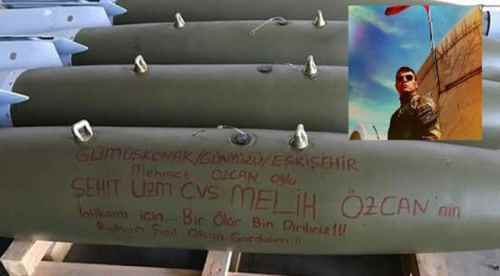 GÜMÜŞKONAK/GÜNYÜZÜ/ESKİŞEHİR
Mehmet ÖZCAN oğlu
ŞEHİT UZM ÇVŞ MELİH ÖZCAN'nın
İntikamı için... Bir Ölür Bin Diriliriz!!!
Ruhun Şad Olsun